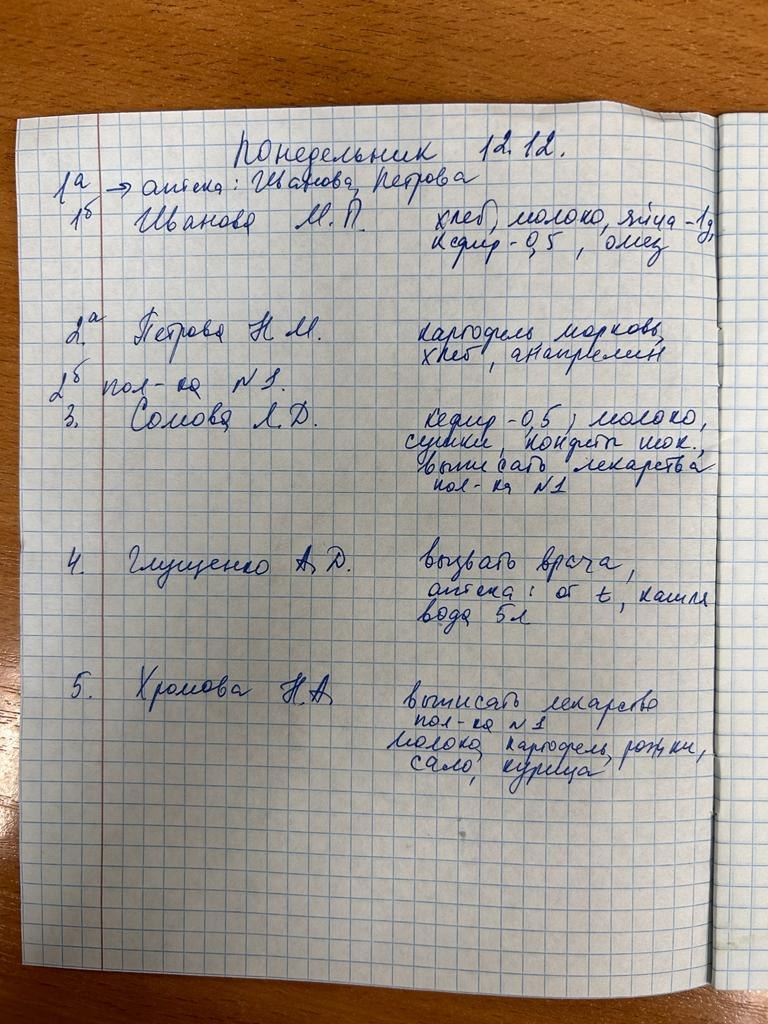 Понедельник 12.12.
1а → аптека: Иванова, Петрова
1б Иванова М.П. хлеб, молоко, яйца - 1д,
кефир - 0,5, омез
2.а Петрова Н.М. картофель, морковь,
хлеб, анаприлин
2б пол-ка №1.
3. Сомова Л.Д. кефир - 0,5, молоко,
сушки, конфеты шок.,
выписать лекарства
пол-ка №1
4. Глущенко А.Д. вызвать врача,
аптека: от t, кашля
вода 5л
5. Хромова Н.А. выписать лекарство
пол-ка №1
молоко, картофель, рожки,
сало, курица